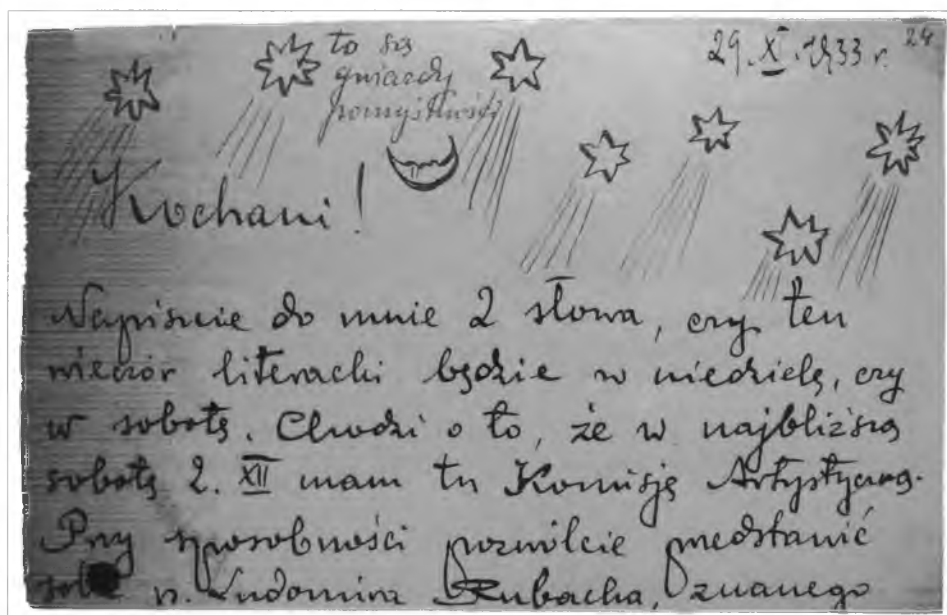 to są
gwiazdy
pomyślności
29.XI.1933 r.
24
Kochani!
Napiszcie do mnie 2 słowa, czy ten
wieczór literacki będzie w niedzielę, czy
w sobotę. Chodzi o to, że w najbliższą
sobotę 2. XII mam tu Komisję Artystyczną.
Przy sposobności pozwólcie przedstawić
sobie p. Ludomira Rubacha, znanego